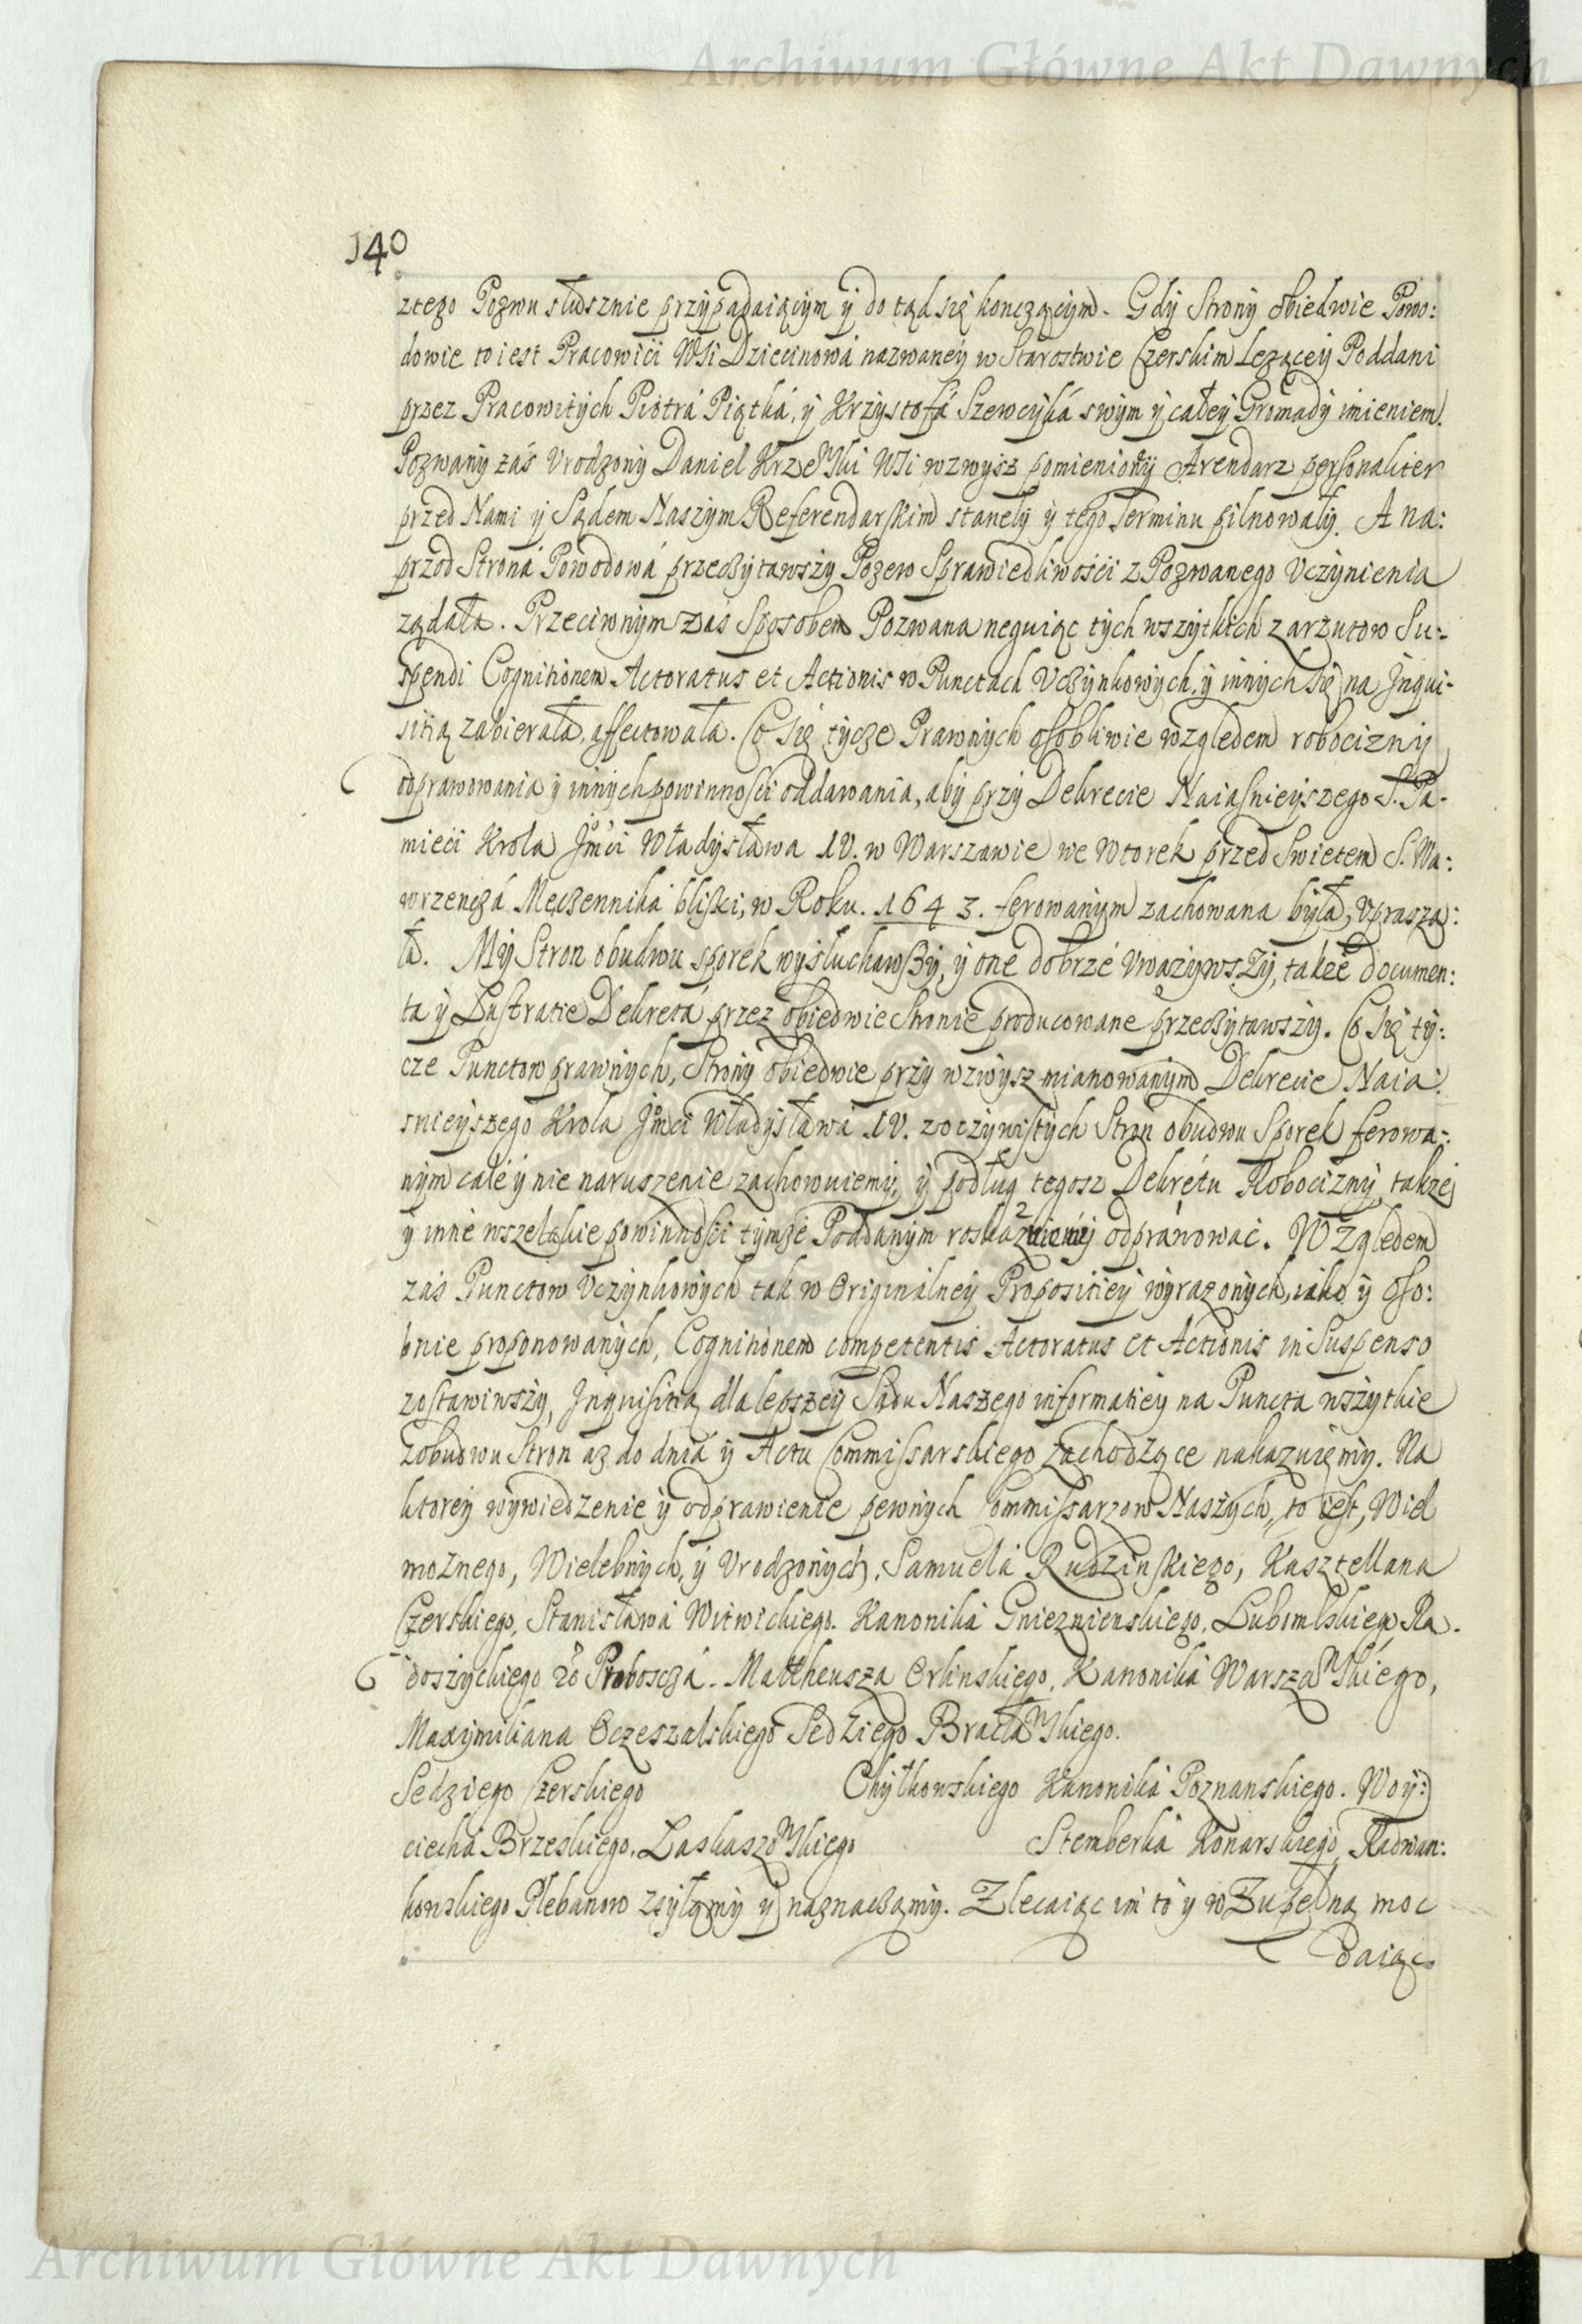 Archiwum Główne Akt Dawnych
140
ztego Pozwu słusznie przypadaiącym y do tąd się konczącym. Gdy Strony obiedwie Powo:
dowie to iest Pracowici Wsi Dziecinowá nazwaney w Starostwie Czerskim Lezącey Poddani
przez Pracowitych Piotrá Piątká, y Krzysztofá Szewczyká swym y całey Gromady imieniem.
Pozwany záś Vrodzony Daniel Krzewski Wsi wzwysz pomieniony Arendarz personaliter
przed Nami y Sądem Naszym Referendarskim staneły y tego Terminu pilnowały. A na:
przod Stroná Powodowá przeczytawszy Pozew Sprawiedliwości z Pozwanego Vczynienia
ządała. Przeciwnym záś Sposobem Pozwana neguiąc tych wszytkich zarzutow Su:
spendi Cognitionem Actoratus et Actionis w Punctach Vczynkowych, y innych się na Inqui-
sitią zabierała, affectowała. Co się tycze Prawnych osobliwie względem robocizny
odprawowania y innych powinności oddawania, aby przy Dekrecie Naiasnieyszego S. Pa-
mieci Krola Jmci Władysława IV. w Warszawie we Wtorek przed Swietem S. Wa:
wrzenczá Męczenniká bliski, w Roku. 1643. ferowanym zachowana była, vprasza:
ła. My Stron obudwu sporek wysłuchawszy, y one dobrze vważywszy, także documen:
ta y Lustratie Dekretá przez obiedwie Stronie producowane przeczytawszy. Co się ty:
cze Punctow prawnych, Strony obiedwie przy wzwysz mianowanym Dekrecie Naia:
snieyszego Krola Jmci Władysława IV. zoczywistych Stron obudwu Sporek ferowa:
nym całe y nie naruszenie zachowuiemy, y podług tegosz Dekrétu Robocizny, także
y inne wszelakie powinności tymże Poddanym roskazuiemy odpráwować. Względem
záś Punctow Vczynkowych tak w Originálney Propositiey wyrazonych, iáko y oso:
bnie proponowanych, Cognitionem competentis Actoratus et Actionis in Suspenso
zostawiwszy, Inquisitią dla lepszey Sądu Naszego informatiey na Puncta wszytkie
zobudwu Stron az do dniá y Actu Commissarskiego zachodzące nakazuięmy. Na
ktorey wywiedzenie y odprawienie pewnych Commissarzow Naszych, to iest, Wiel
moznego, Wielebnych, y Vrodzonych, Samuelá Rudzinskiego, Kasztellana
Czerskiego, Stanisława Witwickiego. Kanoniká Gnieznienskiego, Lubomlskiego Ra.
doszyckiego Proboszczá. Mattheusza Orlinskiego, Kanoniká Warszawskiégo,
Maxymiliana Oczeszalskiego Sedziego Bracławskiego.
Sedziego Czerskiego Chytkowskiego Kanoniká Poznanskiego. Woy:
ciecha Brzeskiego, Laskaszowskiego Stemberká Konarskiego, Radwan:
kowskiego Plebanow zsyłamy y naznaczamy. Zlecaiąc im to y w Zupełną moc
daiąc
Archiwum Główne Akt Dawnych